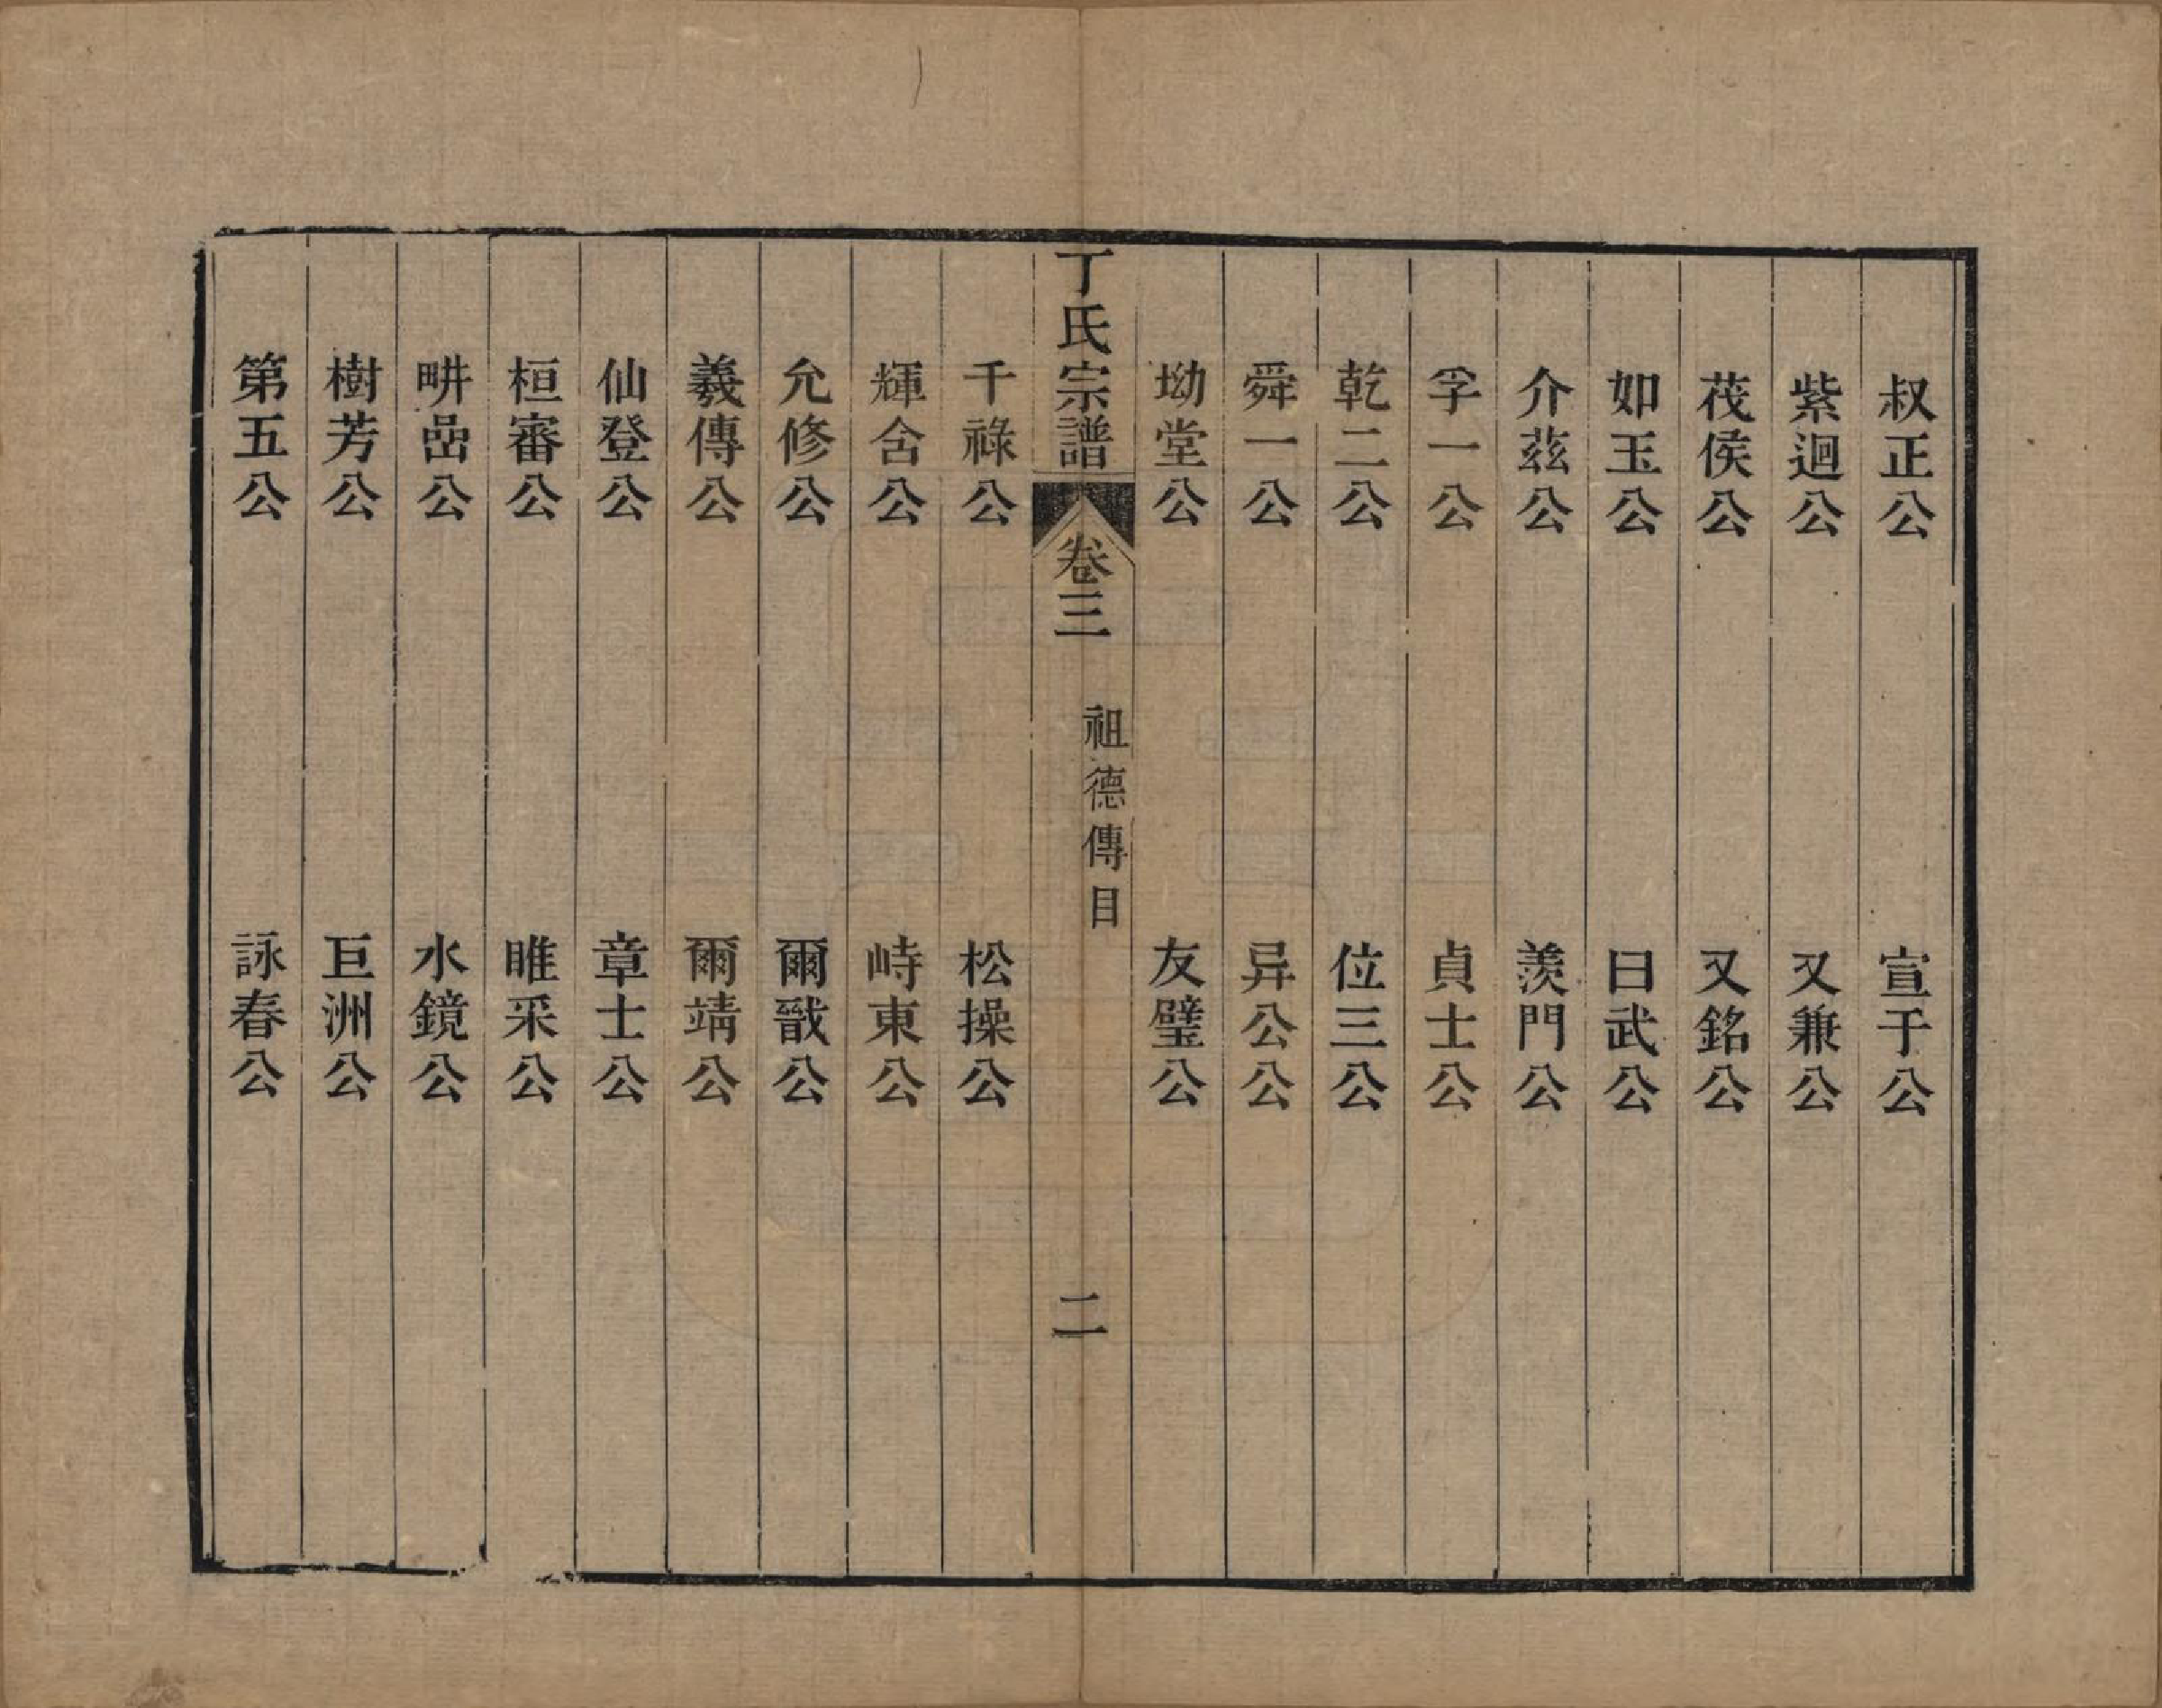 叔正公　宣于公
紫迴公　又兼公
茂侯公　又銘公
如玉公　曰武公
介茲公　羨門公
孚一公　貞士公
乾二公　位三公
舜一公　异公公
坳堂公　友璧公
丁氏宗譜　卷三　祖德傳目　二
千祿公　松操公
輝含公　峙東公
允修公　爾戩公
羲傳公　爾靖公
仙登公　章士公
桓審公　睢采公
畊嵒公　水鏡公
樹芳公　巨洲公
第五公　詠春公